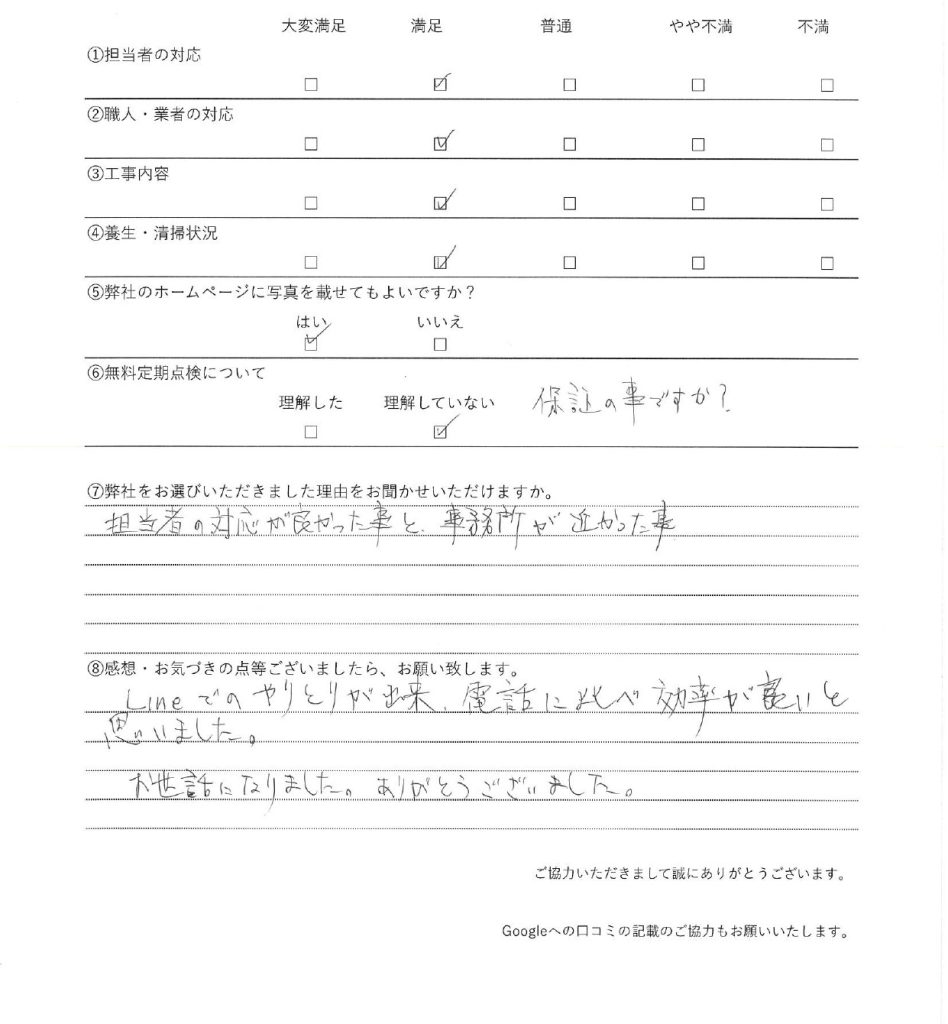 大変満足 満足 普通 やや不満 不満
①担当者の対応
□ ☑ □ □ □
②職人・業者の対応
□ ☑ □ □ □
③工事内容
□ ☑ □ □ □
④養生・清掃状況
□ ☑ □ □ □
⑤弊社のホームページに写真を載せてもよいですか？
はい いいえ
☑ □
⑥無料定期点検について
理解した 理解していない 保証の事ですか？
□ ☑
⑦弊社をお選びいただきました理由をお聞かせいただけますか。
担当者の対応が良かった事と、事務所が近かった事
⑧感想・お気づきの点等ございましたら、お願い致します。
Lineでのやりとりが出来、電話に比べ効率が良いと
思いました。
お世話になりました。ありがとうございました。
ご協力いただきまして誠にありがとうございます。
Googleへの口コミの記載のご協力もお願いいたします。